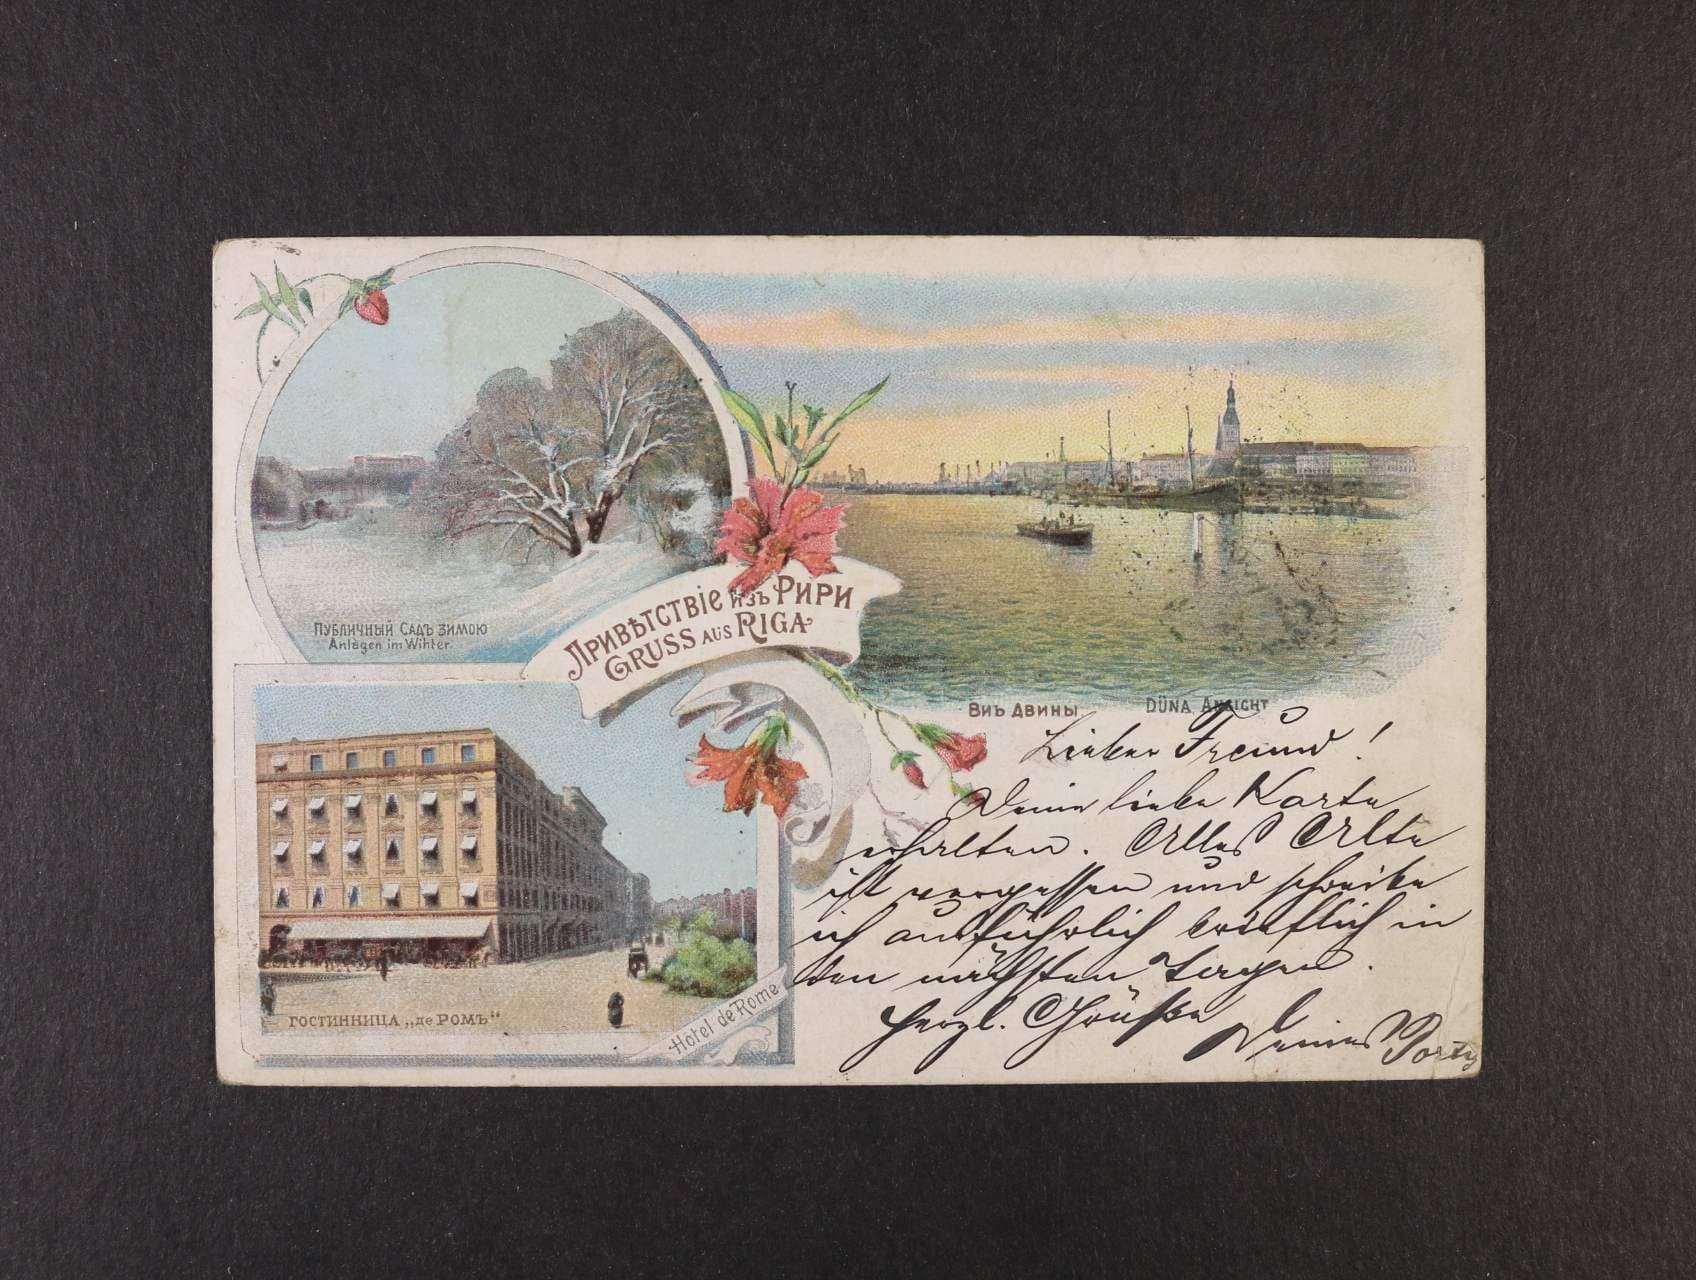 Публичный Садъ зимою
Anlagen im Winter.
Привѣтствіе изъ Рири
Gruss aus Riga
Виъ Двины
Düna Ansicht
Гостинница „де Ромъ“
Hôtel de Rome
Lieber Freund!
Deine liebe Karte
erhalten. Alles Alte
ist vergessen und schreibe
ich ausführlich brieflich in
den nächsten Tagen.
Herzl. Grüße
Deines